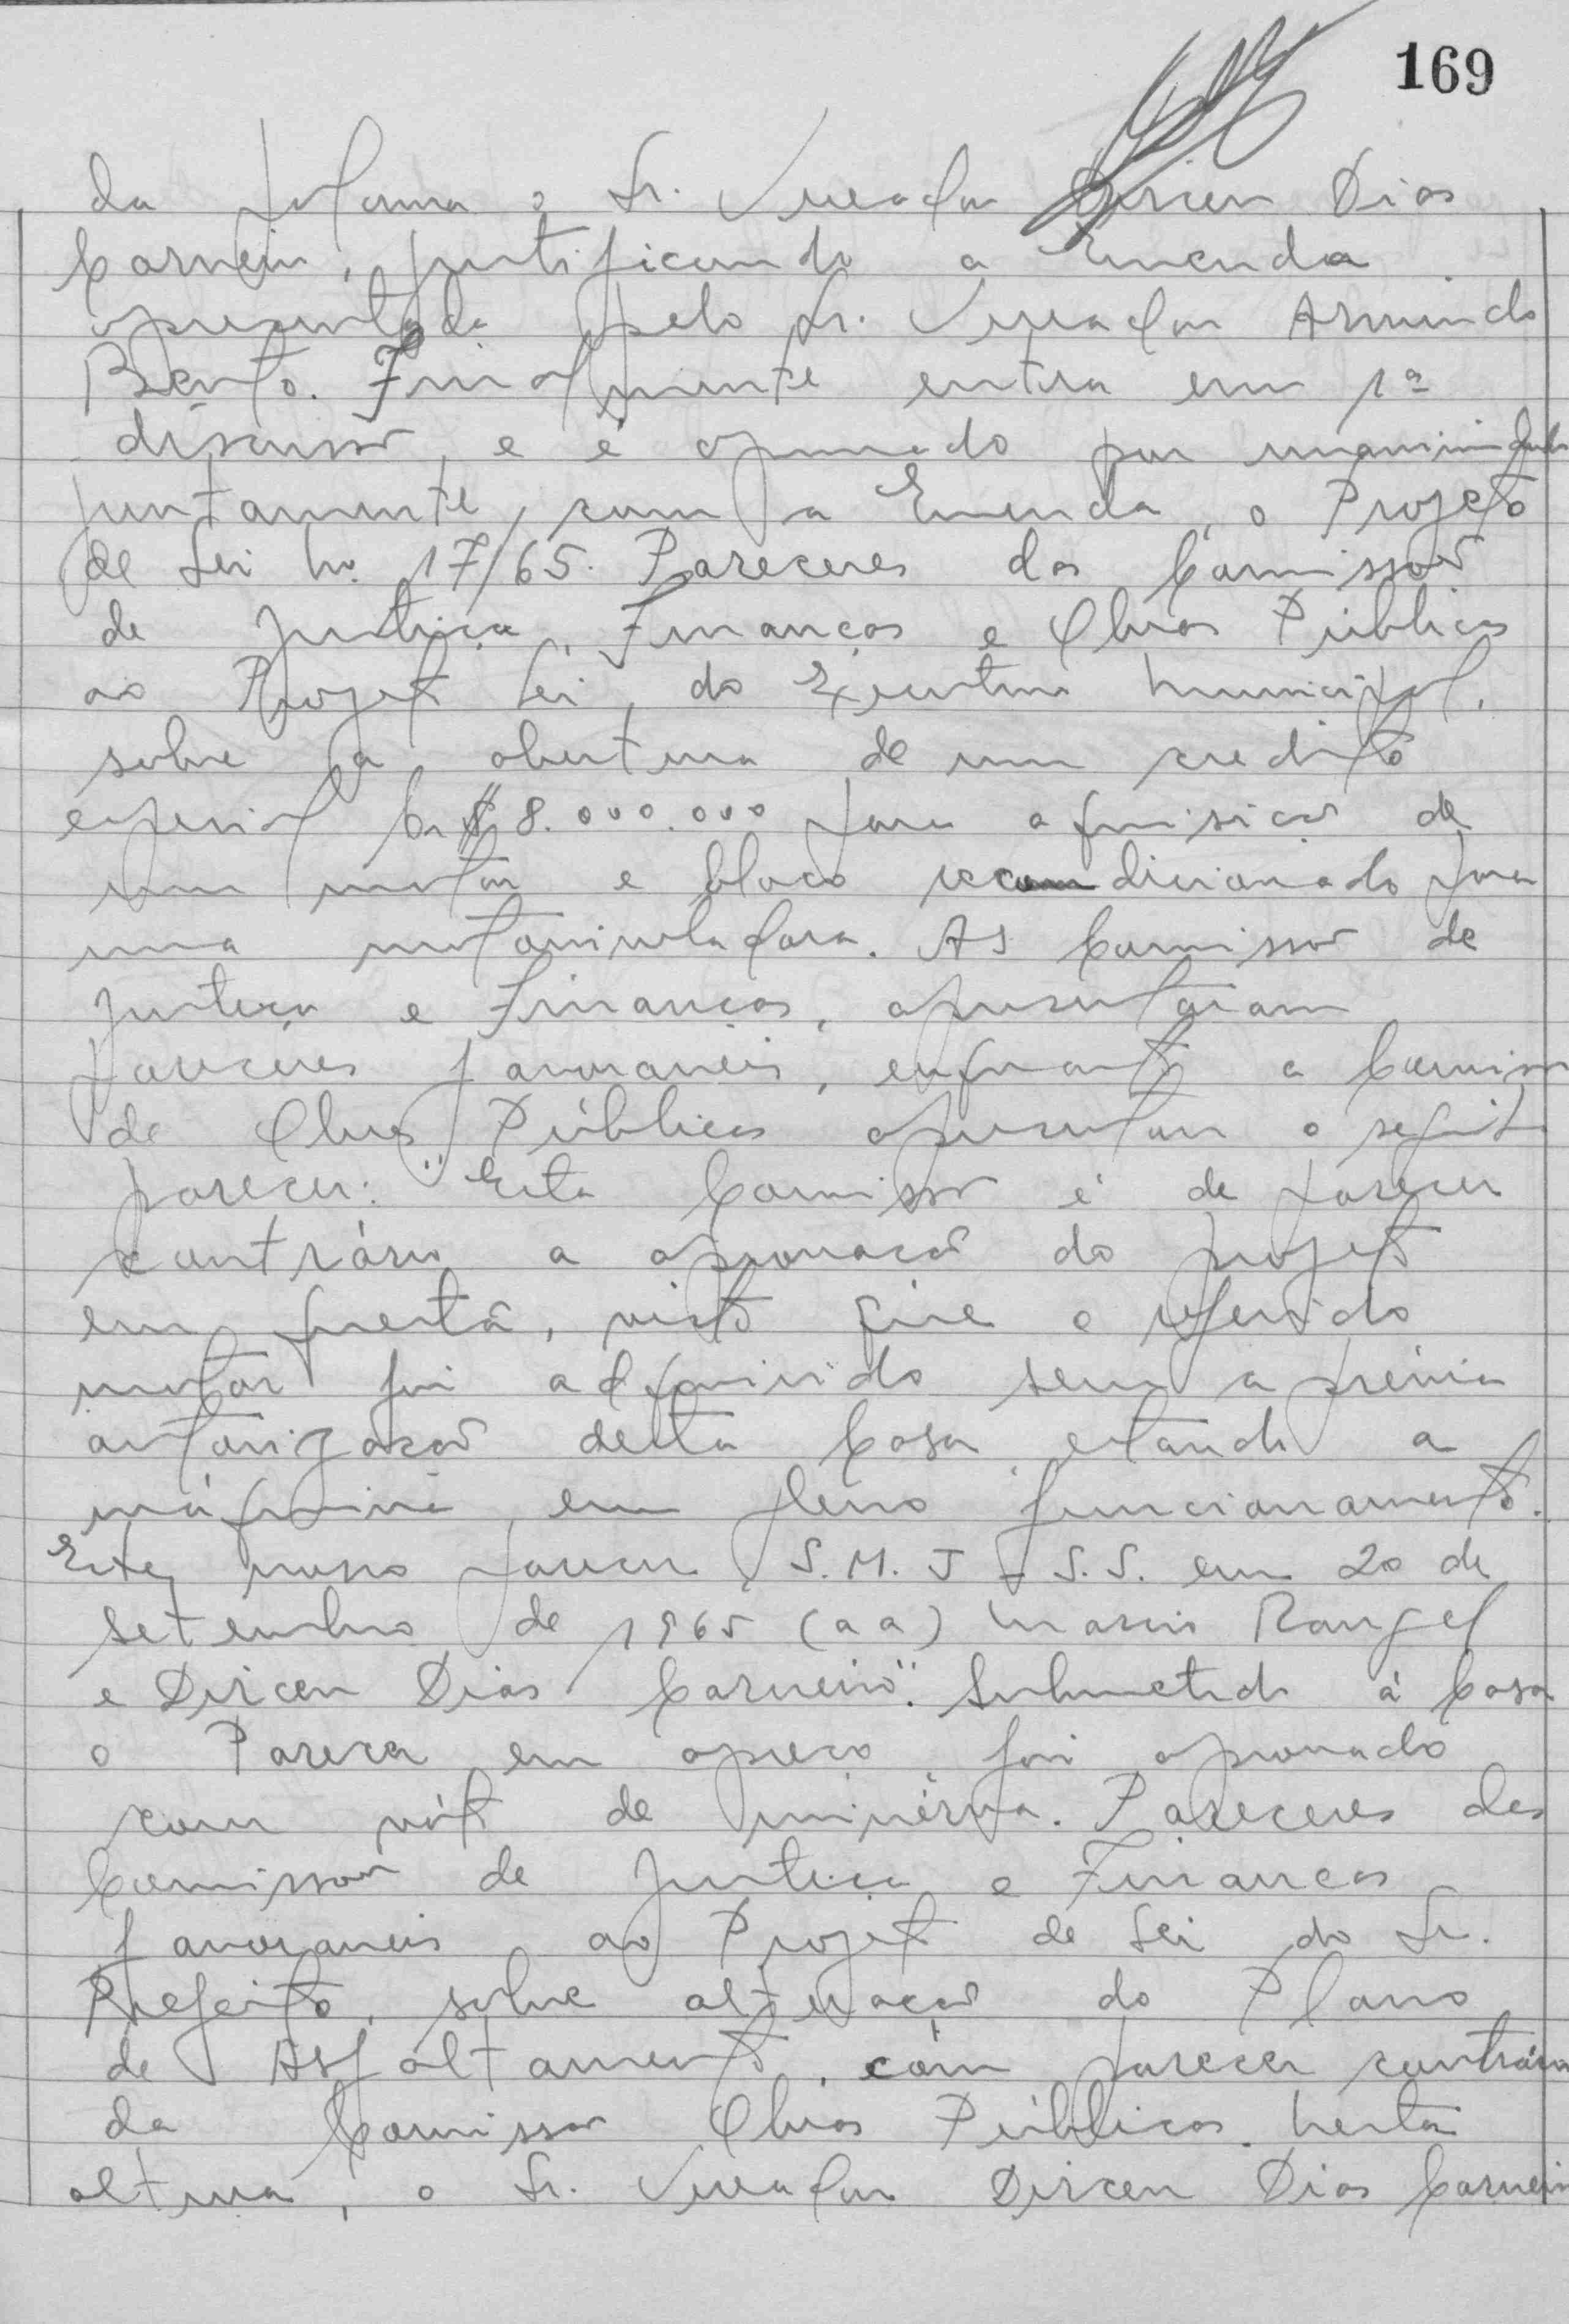 169
da palavra o Sr. Vereador Dirceu Dias
Carneiro, justificando a Emenda
apresentada pelo Sr. Vereador Armindo
Bento. Finalmente entra em 1ª
discussão, e é aprovado por unanimidade
juntamente com a Emenda, o Projeto
de Lei nº 17/65. Pareceres das Comissões
de Justiça, Finanças e Obras Públicas
ao Projeto Lei, do Executivo Municipal,
sobre a abertura de um credito
especial Cr$ 8.000.000 para aquisição de
um motor e bloco recondicionado para
uma motoniveladora. As Comissões de
Justiça e Finanças, apresentaram
pareceres favoraveis, enquanto a Comissão
de Obras Públicas apresentou o seguinte
parecer: "Esta Comissão é de parecer
contrário a aprovação do projeto
em questão, visto que o referido
motor foi adquirido sem a prévia
autorização desta Casa, estando a
máquina em pleno funcionamento.
Este nosso parecer, S.M.J - S.S. em 20 de
setembro de 1965 (aa) Mario Rangel
e Dirceu Dias Carneiro". Submetido á Casa
o Parecer em apreço, foi aprovado
com vóto de minérva. Pareceres das
Comissões de Justiça e Finanças
favoraveis ao Projeto de Lei do Sr.
Prefeito, sobre alteração do Plano
de Asfaltamento, com parecer contrário
da Comissão Obras Públicas. Nesta
altura, o Sr. Vereador Dirceu Dias Carneiro